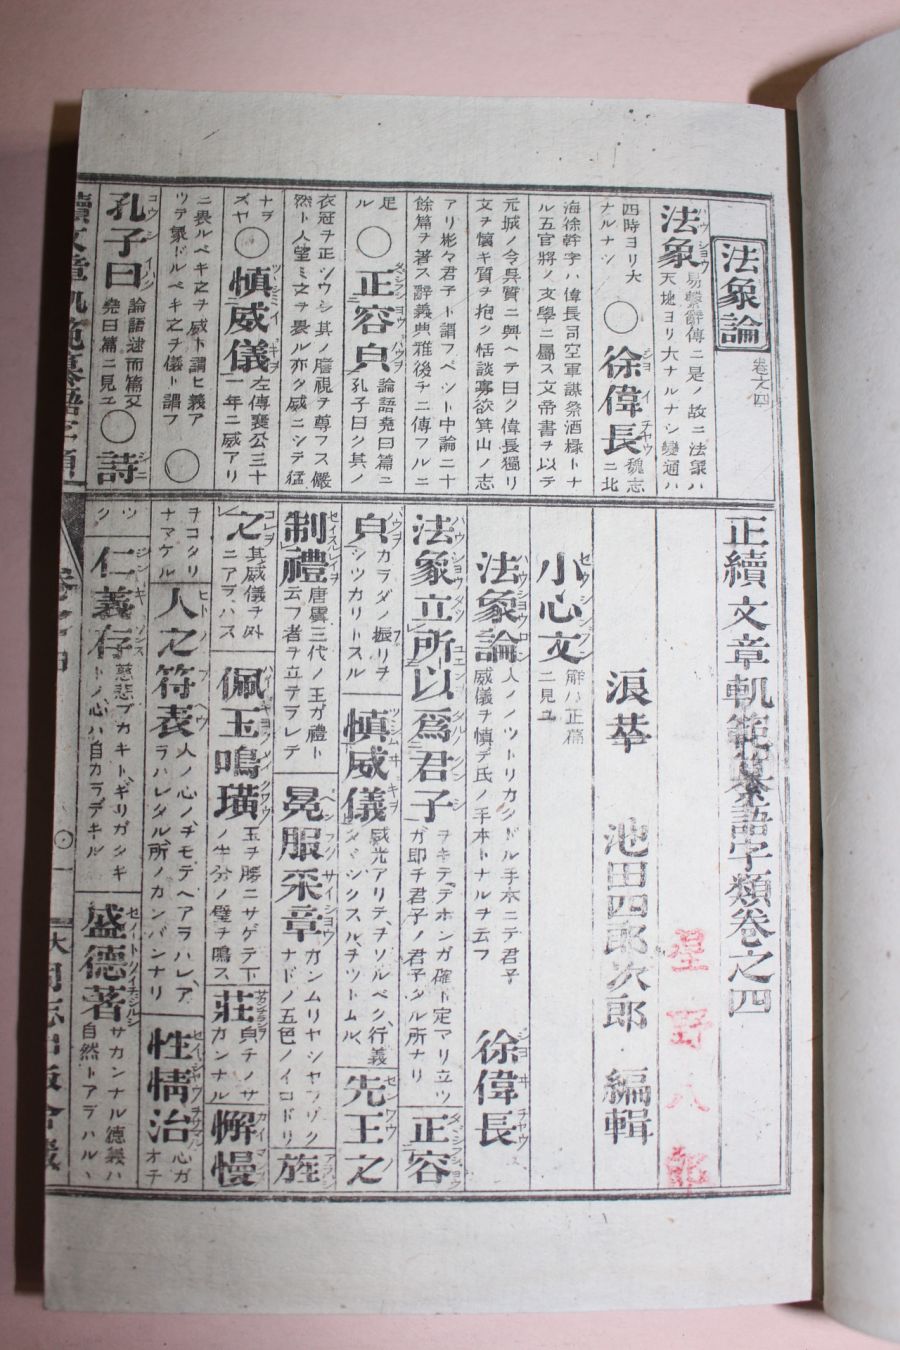 法象論
卷之四
法象 易繫辭傳ニ是ノ故ニ法象ハ天地ヨリ大ナルナシ變通ハ
四時ヨリ大ナルナシ ○ 徐偉長 魏志ニ北
海徐幹字ハ偉長司空軍謀祭酒椽トナル五官將ノ文學ニ屬ス文帝書ヲ以テ
元城ノ令吳質ニ與ヘテ曰ク偉長獨リ文ヲ懷キ質ヲ抱ク恬談寡欲箕山ノ志
アリ彬々君子ト謂フベシト中論二十餘篇ヲ著ス辭義典雅後チニ傳フルニ
足ル ○ 正容皃 論語堯曰篇ニ孔子曰ク其ノ
衣冠ヲ正ソウシ其ノ瞻視ヲ尊フス儼然ト人望ミ之ヲ畏ル亦タ威ニシテ猛
ナヲズヤ ○ 愼威儀 左傳襄公三十一年ニ威アリ
ニ畏ルベキ之ヲ威ト謂ヒ義アツテ象ドルベキ之チ儀ト謂フ ○
孔子曰 論語述而篇又堯曰篇ニ見ユ ○ 詩
正續文章軌範纂語字類卷之四
星野八郎
浪華 池田四郎次郎 編輯
小心文 解ハ正篇ニ見ユ
法象論 人ノノツトリカタドル手本ニテ君子威儀ヲ愼デ氏ノ手本トナルヲ云フ 徐偉長
法象立所以爲君子 ヲキテテホンガ確ト定マリ立ツガ卽チ君子ノ君子タル所ナリ 正容
皃 カラダノ振リヲシツカリトスル 愼威儀 威光アリテヲソルベク行義タヾシクスルヲツトムル 先王之
制禮 唐虞三代ノ王ガ禮ト云フ者ヲ立テラレテ 冕服采章 ガンムリヤシヤウゾクナドノ五色ノイロドリ 旌
之 其威儀ヲ外ニアラハス 佩玉鳴璜 玉ヲ腰ニサゲテ下ノ半分ノ璧ヲ鳴ス 莊 皃チノサカンナル 懈慢
ヲコタリナマケル 人之符表 人ノ心ノヲモテヘアラハレアラハレタル所ノカンバンナリ 性情治 心ガオチ
ツク 仁義存 慈悲ブカキトギリガタキトノ心ハ自カラデキル 盛德著 サカンナル德義ハ自然トアラハル